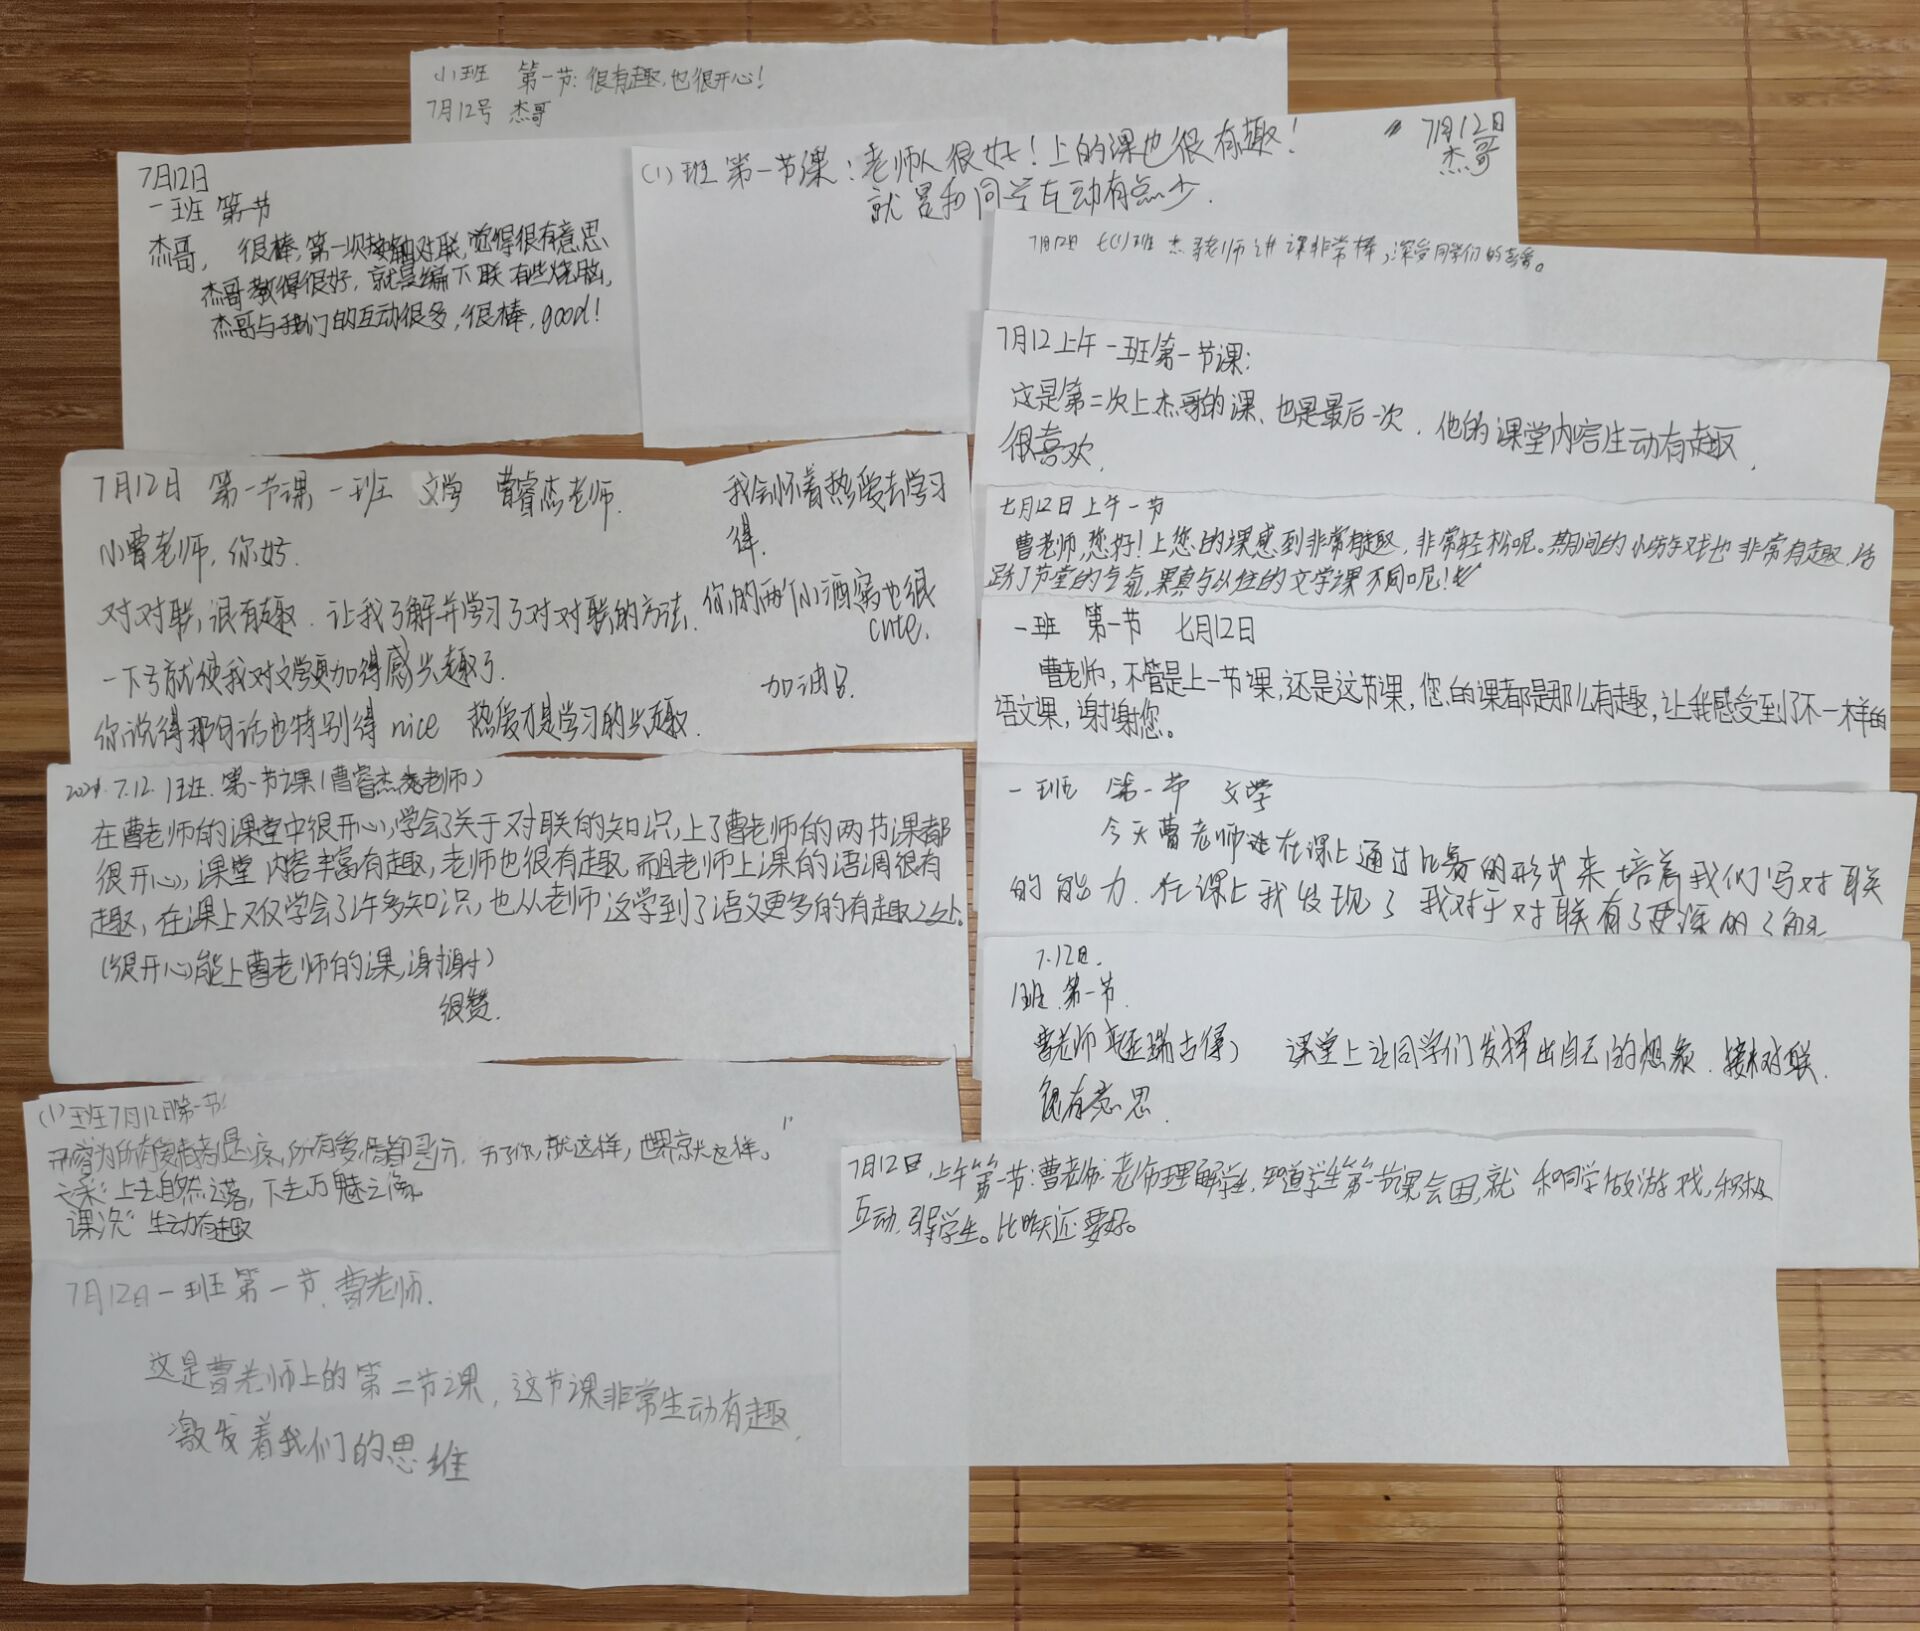 小班 第一节:很有趣,也很开心!
7月12号 杰哥
7月12日
一班 第一节
杰哥, 很棒,第一次接触对联,觉得很有意思、
杰哥教得很好,就是编下联有些烧脑,
杰哥与我们的互动很多,很棒,good!
(1)班 第一节课:老师人很好!上的课也很有趣!
就是和同学互动有点少.
7月12日
杰哥
7月12日 七(1)班 杰哥老师讲课非常棒,深受同学们的喜爱。
7月12上午一班第一节课:
这是第二次上杰哥的课、也是最后一次.他的课堂内容生动有趣,
很喜欢.
7月12日 第一节课 一班 文学 曹睿杰老师.
小曹老师,你好.
对对联,很有趣.让我了解并学习了对对联的方法.
一下子就使我对文学更加得感兴趣了.
你说得那句话也特别得nice 热爱才是学习的兴趣.
我会怀着热爱去学习
得.
你的两个小酒窝也很
cute.
加油吕.
七月12日上午一节
曹老师,您好!上您的课感到非常有趣,非常轻松呢。期间的小游戏也非常有趣,活
跃了节堂的气氛,果真与以往的文学课不同呢!
一班 第一节 七月12日
曹老师,不管是上一节课,还是这节课,您的课都是那么有趣,让我感受到了不一样的
语文课,谢谢您。
2024.7.12.1班.第一节课(曹睿杰老师)
在曹老师的课堂中很开心,学会了关于对联的知识,上了曹老师的两节课都
很开心,课堂内容丰富有趣,老师也很有趣,而且老师上课的语调很有
趣,在课上不仅学会了许多知识,也从老师这学到了语文更多的有趣之处.
(很开心能上曹老师的课,谢谢)
很赞.
一班 第一节 文学
今天曹老师在课上通过比赛的形式来培养我们写对联
的能力.在课上我发现了我对于对联有了更深的了解
7.12日.
1班.第一节.
曹老师 课堂上让同学们发挥出自己的想象.接对联.
很有意思.
(1)班7月12日第一节
就这样,世界京尤这样。"
文采:上去自然之落,下去万魅之渔。
课况:生动有趣
7月12日,上午第一节:曹老师:老师理解学生,知道学生第一节课会困,就和同学做游戏,积极
互动,引导学生。比昨天还要好。
7月12日一班第一节.曹老师.
这是曹老师上的第二节课,这节课非常生动有趣,
激发着我们的思维